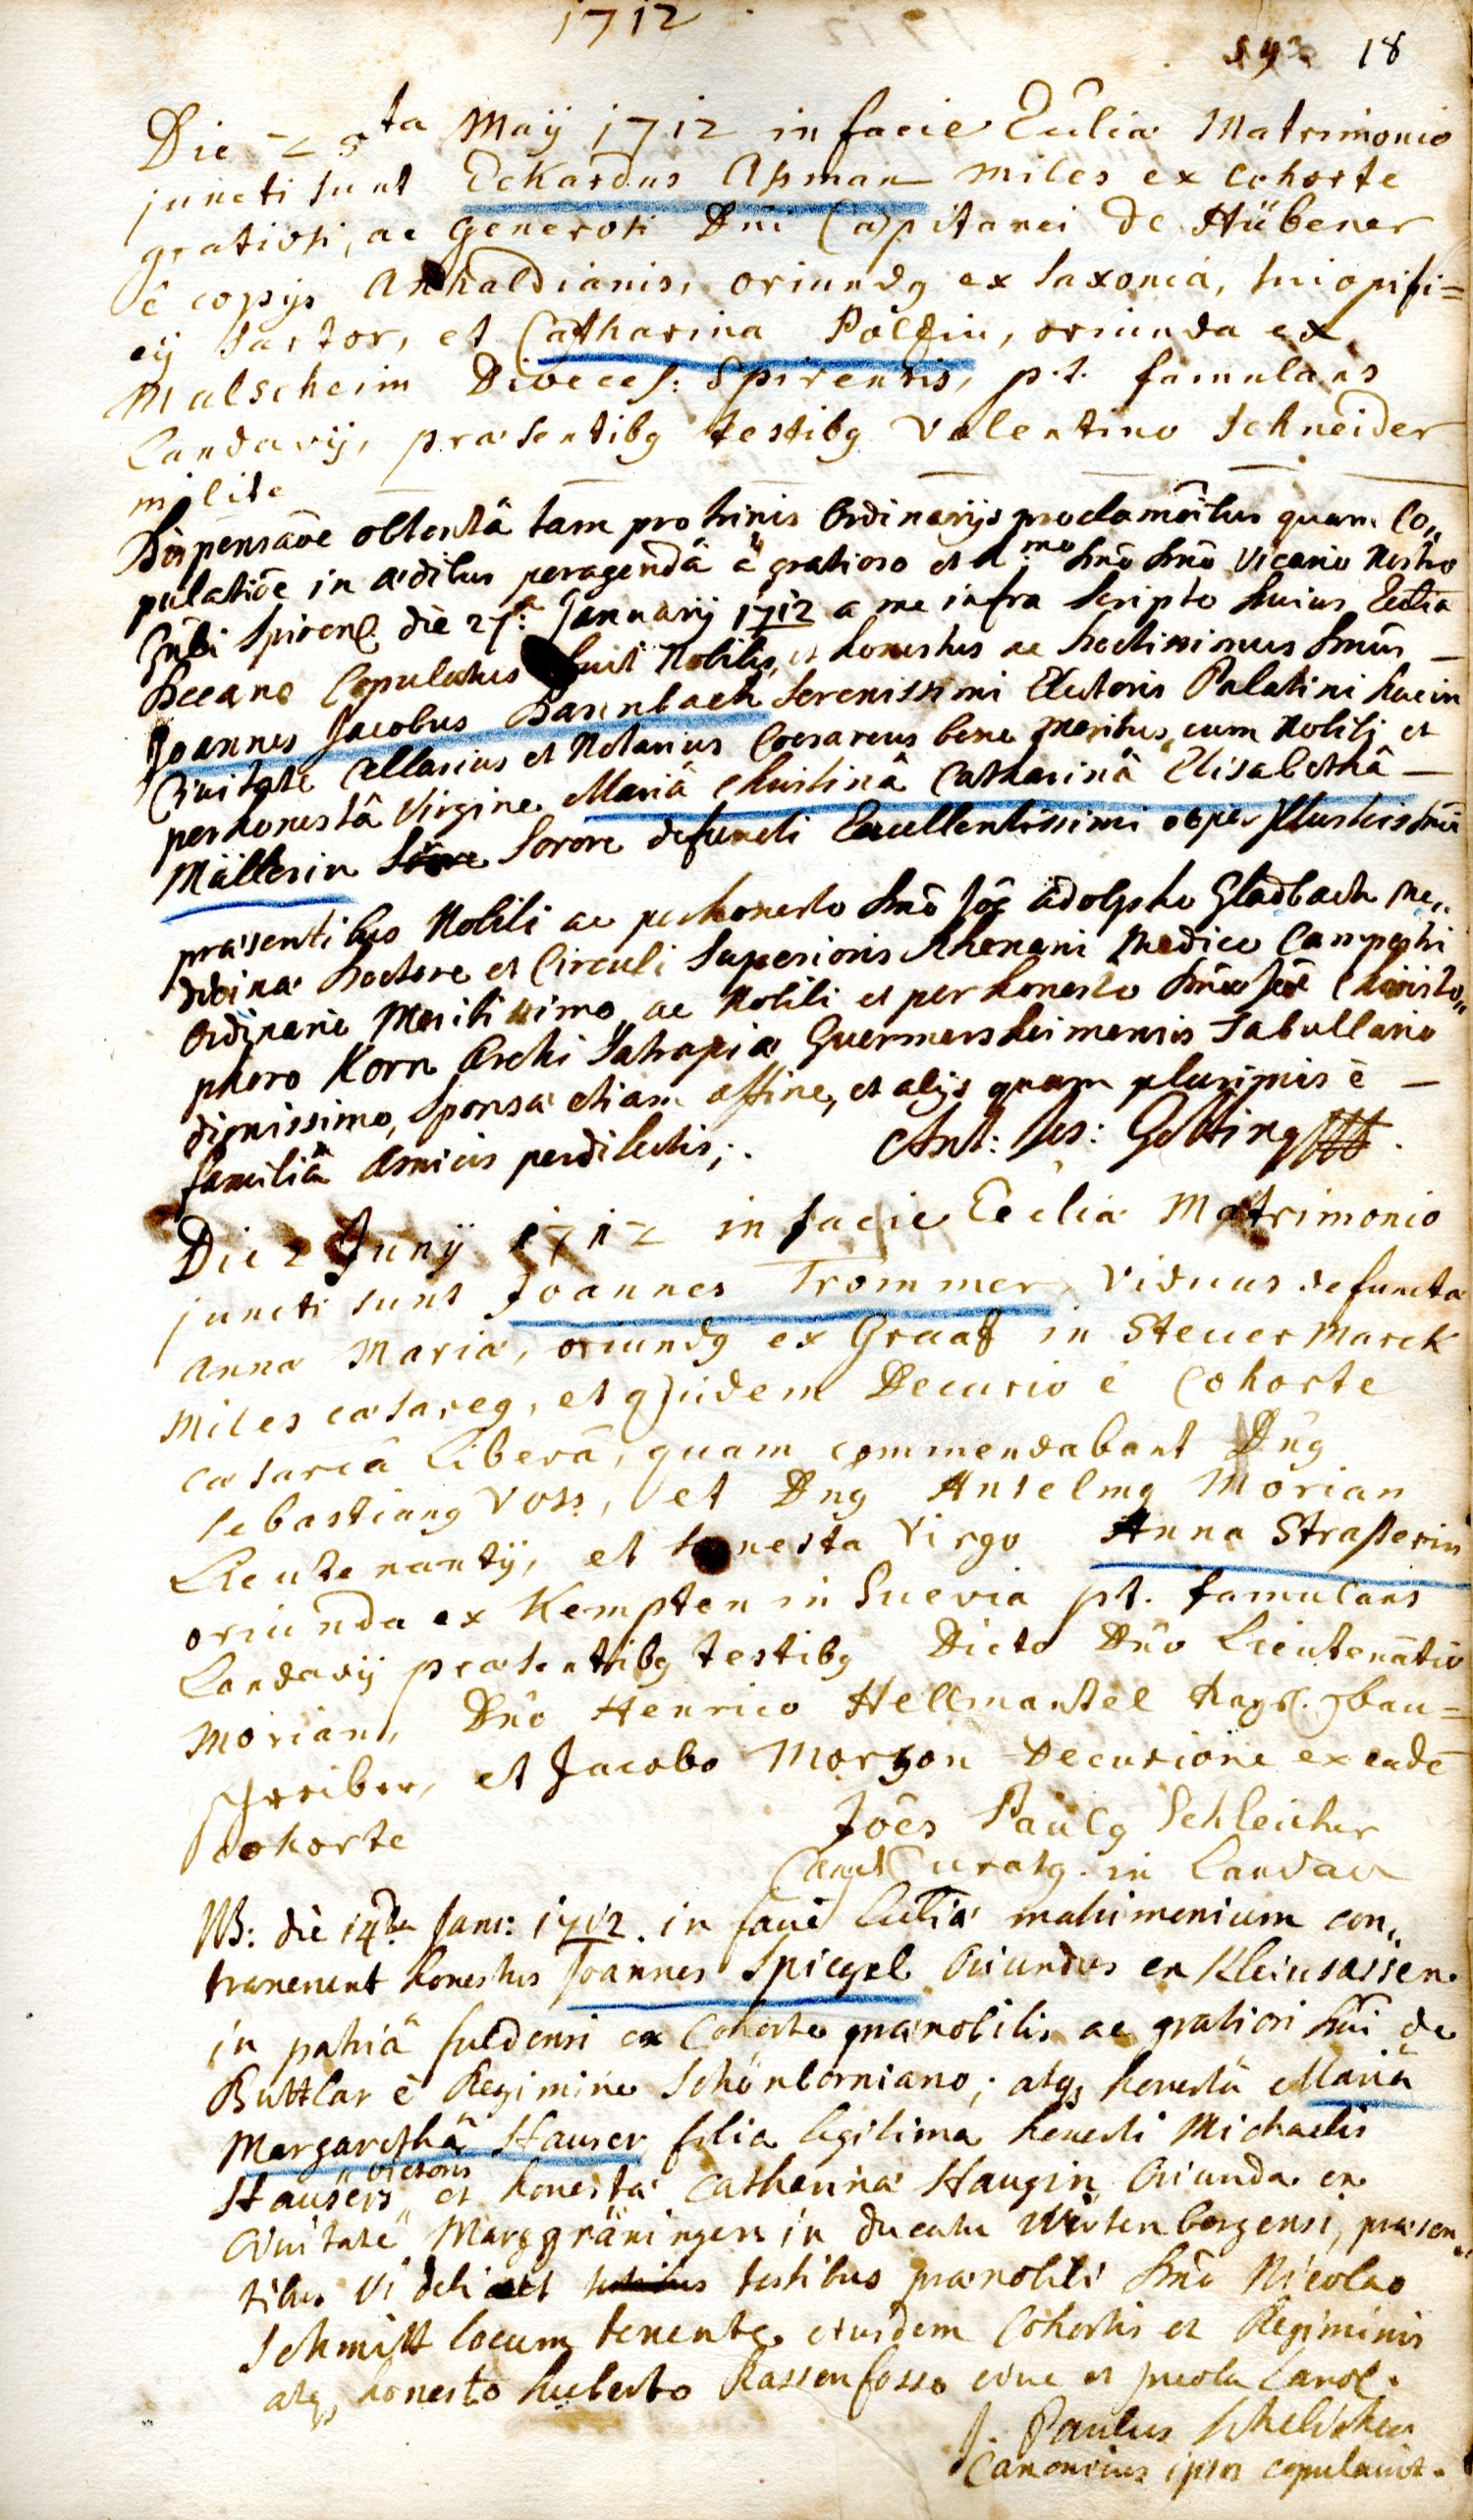 1712
18
Die 25ta Maÿ 1712 in facie Eccliæ Matrimonio
juncti sunt Eckardus Asman miles ex cohorte
gratiosi, ac Generosi Dni Capitanei de Hübener
è copÿs Anhaldianis, oriundq ex Saxonia, sui opifi=
cÿ sartor, et Catharina, oriunda ex
Malscheim Dioeces: Spirensis, p.t. famulans
Landavÿ, præsentibq testibq Valentino Schneider
milite
Dispensaōe obtentâ tam pro trinis Ordinarÿs proclamōibus quam Co„
pulatiōe in ædibus peragendâ à gratioso et R:mo Dnō Dnō Vicario Nostro
Gnāli Spirens. die 27:a Januarÿ 1712 a me infra scripto huius Eccliæ
Decano Copulatus fuit Nobilis, et honestus ac Doctissimus Dnus
Joannes Jacobus Serenissimi Electoris Palatini hac in
Civitate Cellarius et Notarius Cæsareus bene meritus, cum Nobili et
perhonestâ Virgine Mariâ Christinâ Catharinâ Elisabethâ
Müllerin Sorore defuncti Excellentissimi
præsentibus Nobili ac perhonesto Dnō Joē Adolpho Gladbach Me„
dicinæ Doctore et Circuli Superioris Rhenani Medico Campestri
Ordinario Meritissimo ac Nobili et perhonesto Dnō Joē Christo„
phoro Korn Archi Satrapiæ Guermersheimensis Tabullario
dignissimo, Sponsæ etiam affine, et alÿs quam plurimis è
familiâ Amicis perdilectis;. Ant: Jos: Gotting
Die 2 Junÿ 1712 in facie Eccliæ Matrimonio
juncti sunt Joannes Trommer, Viduus defunctæ
Annæ Mariæ, oriundq ex Graatz in Steuer Marck
Miles cæsareq, et qsidem Decurio è Cohorte
cæsareâ Liberâ, quam commendabant Dnq
Sebastianq Voss, et Dnq Anselmq Morian
Lieutenantÿ, et honesta Virgo Anna Strasserin
oriunda ex Kempten in Suevia p.t. famulans
Landavÿ præsentibq testibq Dicto Dnō Lieutenātio
Morian, Dnō Henrico Hellmantel Kaysl. bau=
schreiber, et Jacobo Morzon Decurione ex eadē
cohorte
Joēs Paulq Schleicher
Curatq. in Landau
NB: die 14ta Jan: 1712. in facie Eccliæ matrimonium con„
traxerunt honestus Joannes Spiegel Oriundus ex Kleinsassen
in patriâ fuldensi ex Cohorte prænobilis ac gratiosi Dni de
Buttlar è Regimine Schönborniano; atq honestâ Mariâ
Margarethâ Hauser filia legitima honesti Michaelis
Hausers vietoris et honestæ Catharinæ Haugin Oriunda ex
Civitate Marggräningen in ducatu Wirtenbergensi, præsen„
tibus videlicet testibus prænobili Dnō Nicolao
Schmitt locum tenente eiusdem Cohortis et Regiminis
atq honesto Huberto Rassenfosse cive et
J. Paulus Schleicher
Canonicus ipsos copulavit.